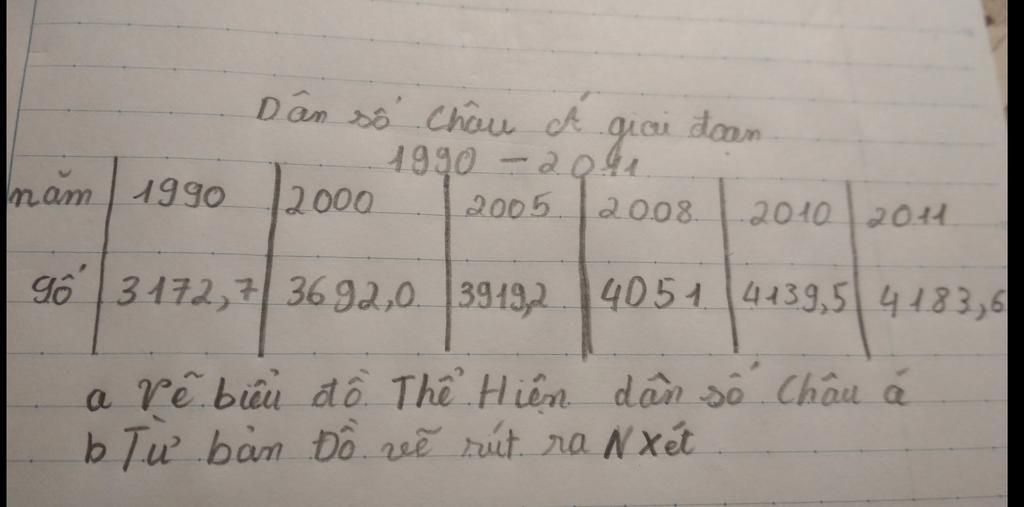 Dân số Châu Á giai đoạn
1990 - 2011
năm 1990 2000 2005 2008 2010 2011
số 3172,7 3692,0 3919,2 4051 4139,5 4183,6
a Vẽ biểu đồ Thể Hiện dân số Châu á
b Từ bản Đồ vẽ rút ra N xét